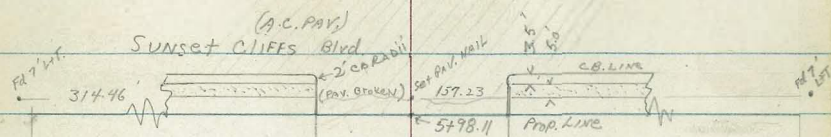 (A.C. PAV.)
SUNSET CLIFFS Blvd.
Fd 7' L&T.
314.46'
2' CB RADII
(PAV. BROKEN)
Set PAV. NAIL
157.23
5+98.11
5.0'
CB. LINE
Prop. LINE
Fd 7'
L&T